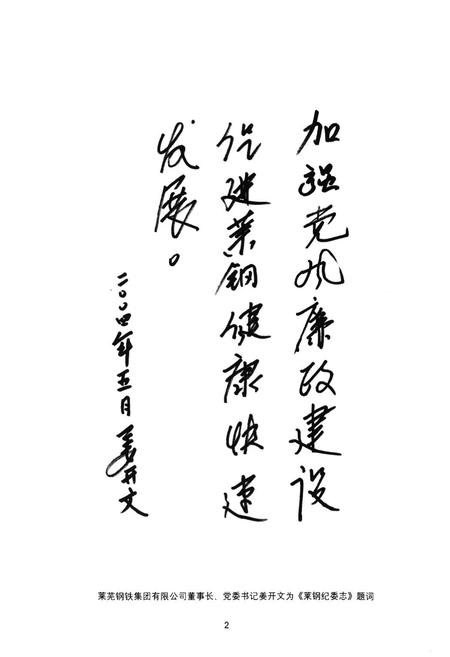 加强党风廉政建设
促进莱钢健康快速
发展。
二〇〇四年五月 姜开文
莱芜钢铁集团有限公司董事长、党委书记姜开文为《莱钢纪委志》题词
2